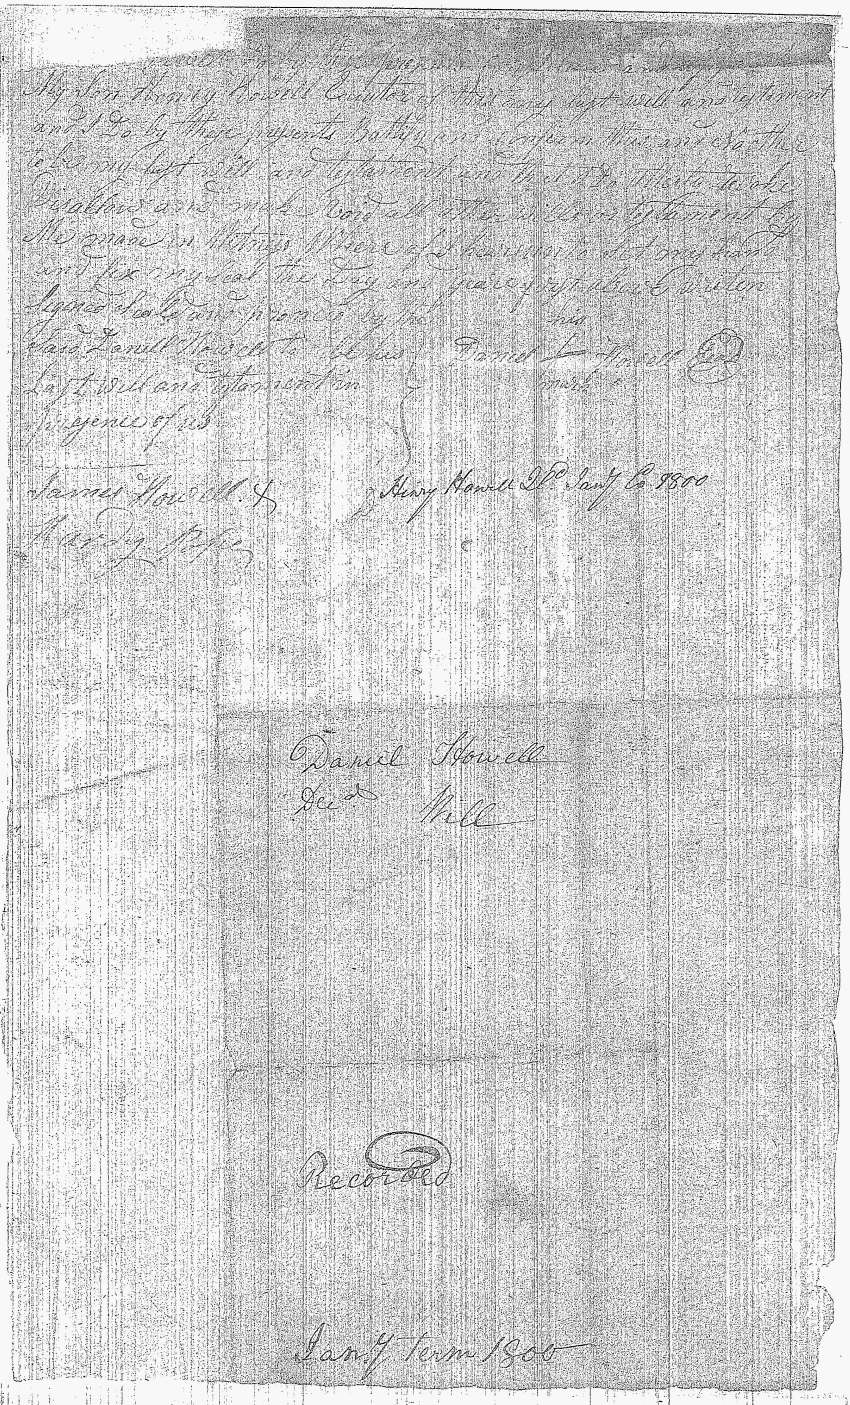 these presents
My Son Henry Howell Executor of this my last will and testament
and I Do by these presents Ratify and Confirm this and No other
to be my last will and testament and that I Do utterly
Disallow and make Void all other wills or testament by
Me made in Witness Where of I have unto Set my hand
and fix my seal the Day and year first above writen
Signed Seald and
Said Daniell Howell to be his
Last will and testament in
presence of us
his
Daniel Howell Seal
mark
James Howell
Hardy Pope
Henry Howell Janry Co 1800
Daniel Howell
Decd Will
Recorded
Jany Term 1800